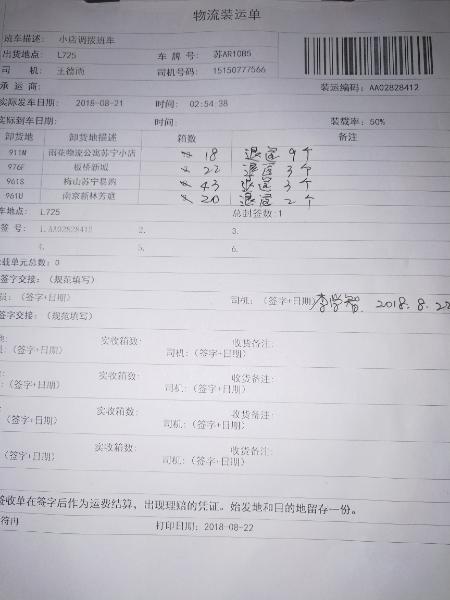 物流装运单
班车描述: 小店调拨班车
出货地点: L725 车 牌 号: 苏AR10B5
司 机: 王德尚 司机号码: 15150777566
承 运 商: 装运编码: AA02828412
实际发车日期: 2018-08-21 时间: 02:54:38
实际到车日期: 时间: 装载率: 50%
卸货地 卸货地描述 箱数 备注
911M 雨花物流公寓苏宁小店 18 退筐 9个
976F 板桥新城 22 退筐 3个
961S 梅山苏宁易购 43 退筐 3个
961U 南京新林芳庭 20 退筐 2个
车地点: L725 总封签数:1
签 号: 1.AA02828412 2. 3.
4. 5. 6.
载单元总数: 0
签字交接: (规范填写)
员: (签字+日期) 司机: (签字+日期) 李学智 2018.8.22
签字交接: (规范填写)
地: 实收箱数: 收货备注:
: (签字+日期) 司机: (签字+日期)
实收箱数: 收货备注:
: (签字+日期) 司机: (签字+日期)
实收箱数: 收货备注:
(签字+日期) 司机: (签字+日期)
实收箱数: 收货备注:
(签字+日期) 司机: (签字+日期)
签收单在签字后作为运费结算, 出现理赔的凭证。始发地和目的地留存一份。
符冉 打印日期: 2018-08-22